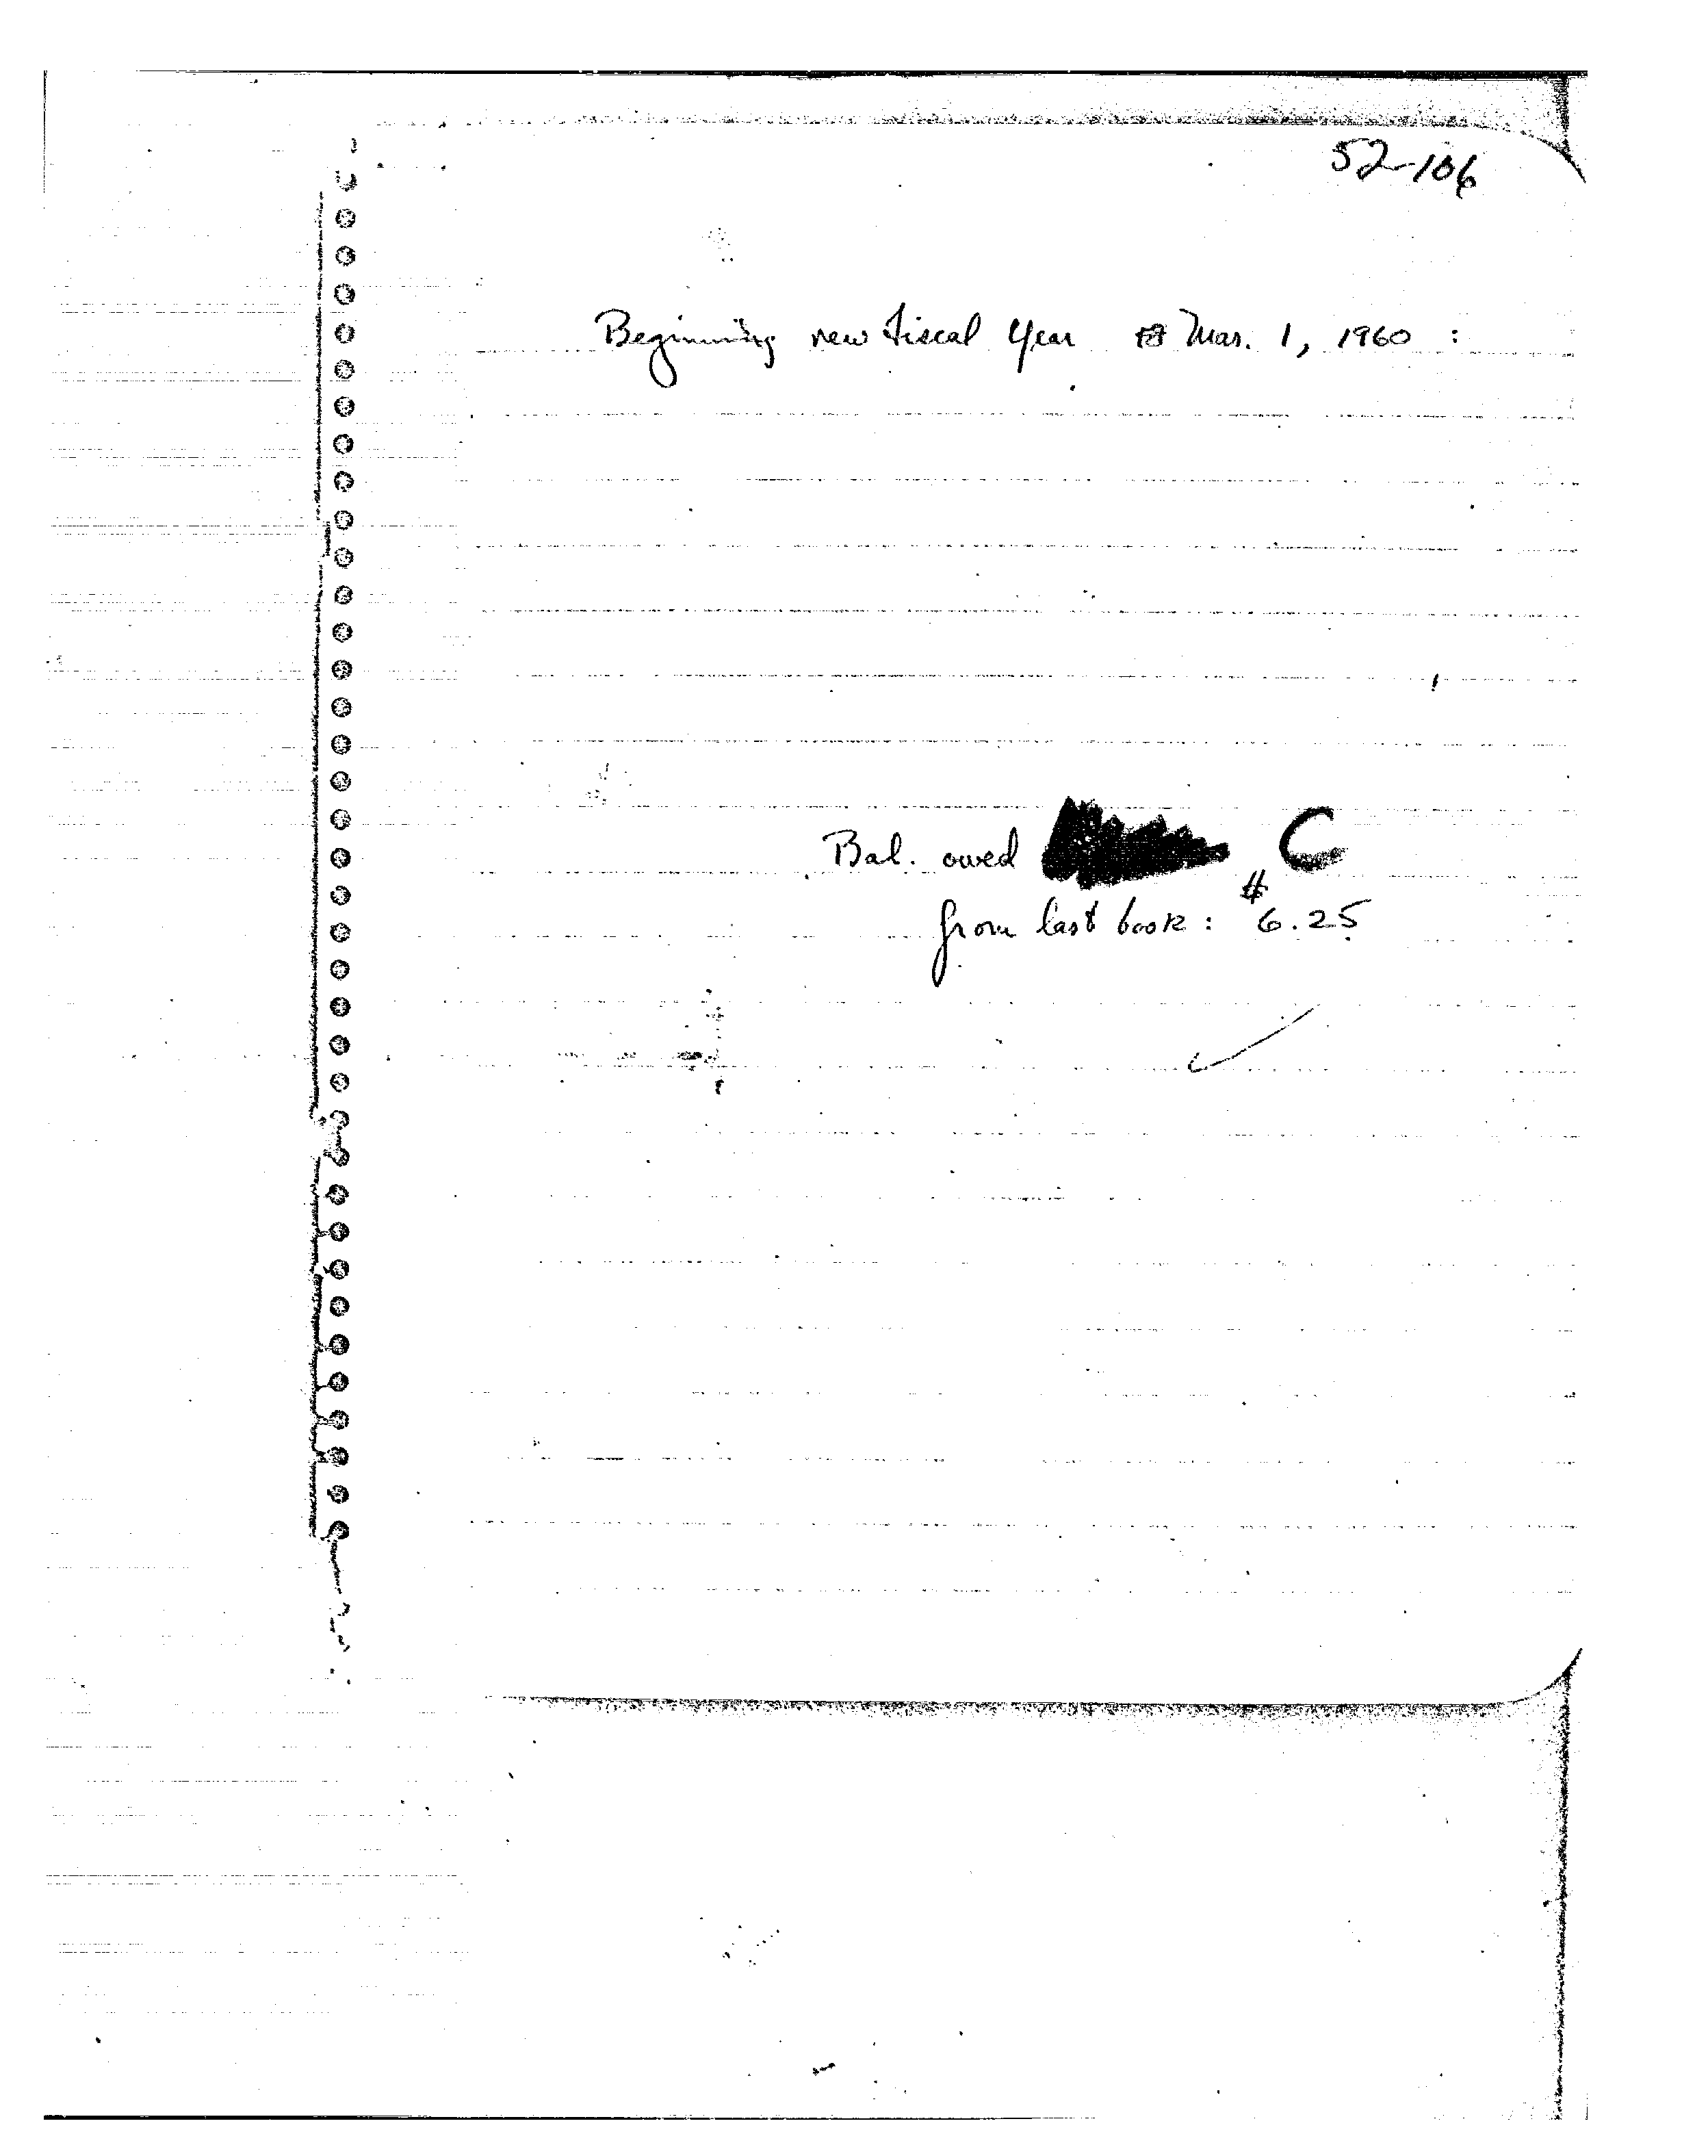 52-106
Beginning new fiscal Year Mar. 1, 1960 :
Bal. owed C
from last book : $6.25